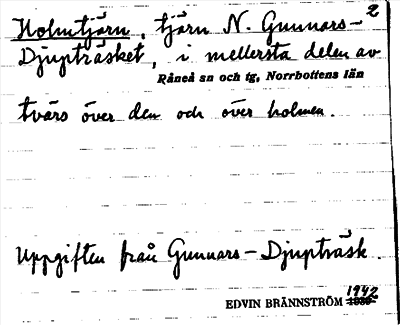 Holmtjärn, tjärn N. Gunnars- 2
Djupträsket, i mellersta delen av
Råneå sn och tg, Norrbottens län
tvärs över den och över holmen.
Uppgiften från Gunnars-Djupträsk.
1942
EDVIN BRÄNNSTRÖM 1939